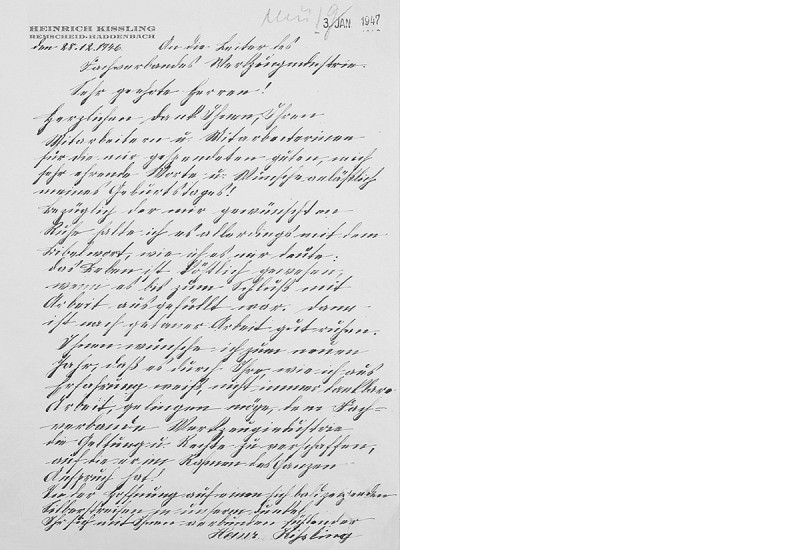 3. JAN 1947
HEINRICH KISSLING
REMSCHEID-HADDENBACH
den 28.12.1946. An die Leiter des
Fachverbandes Werkzeugindustrie.
Sehr geehrte Herren!
Herzlichen Dank Ihnen, Ihren
Mitarbeitern u. Mitarbeiterinnen
für die mir gespendeten guten, mich
sehr ehrende Worte u. Wünsche anläßlich
meines Geburtstages!
Bezüglich der mir gewünschten
Ruhe halte ich es allerdings mit dem
Bibelwort, wie ich es mir deute:
das Leben ist köstlich gewesen,
wenn es bis zum Schluß mit
Arbeit ausgefüllt war. Dann
ist nach getaner Arbeit gut ruhen.
Ihnen wünsche ich zum neuen
Jahr, daß es durch Ihre, wie ich aus
Erfahrung weiß, nicht immer dankbare
Arbeit, gelingen möge, dem Fach-
verbande Werkzeugindustrie
die Geltung u. Rechte zu verschaffen,
auf die er im Rahmen des Ganzen
Anspruch hat!
In der Hoffnung auf einen sich bald zeigenden
Silberstreifen in unserm Dunkel
Ihr sich mit Ihnen verbunden fühlender
Heinr. Kissling